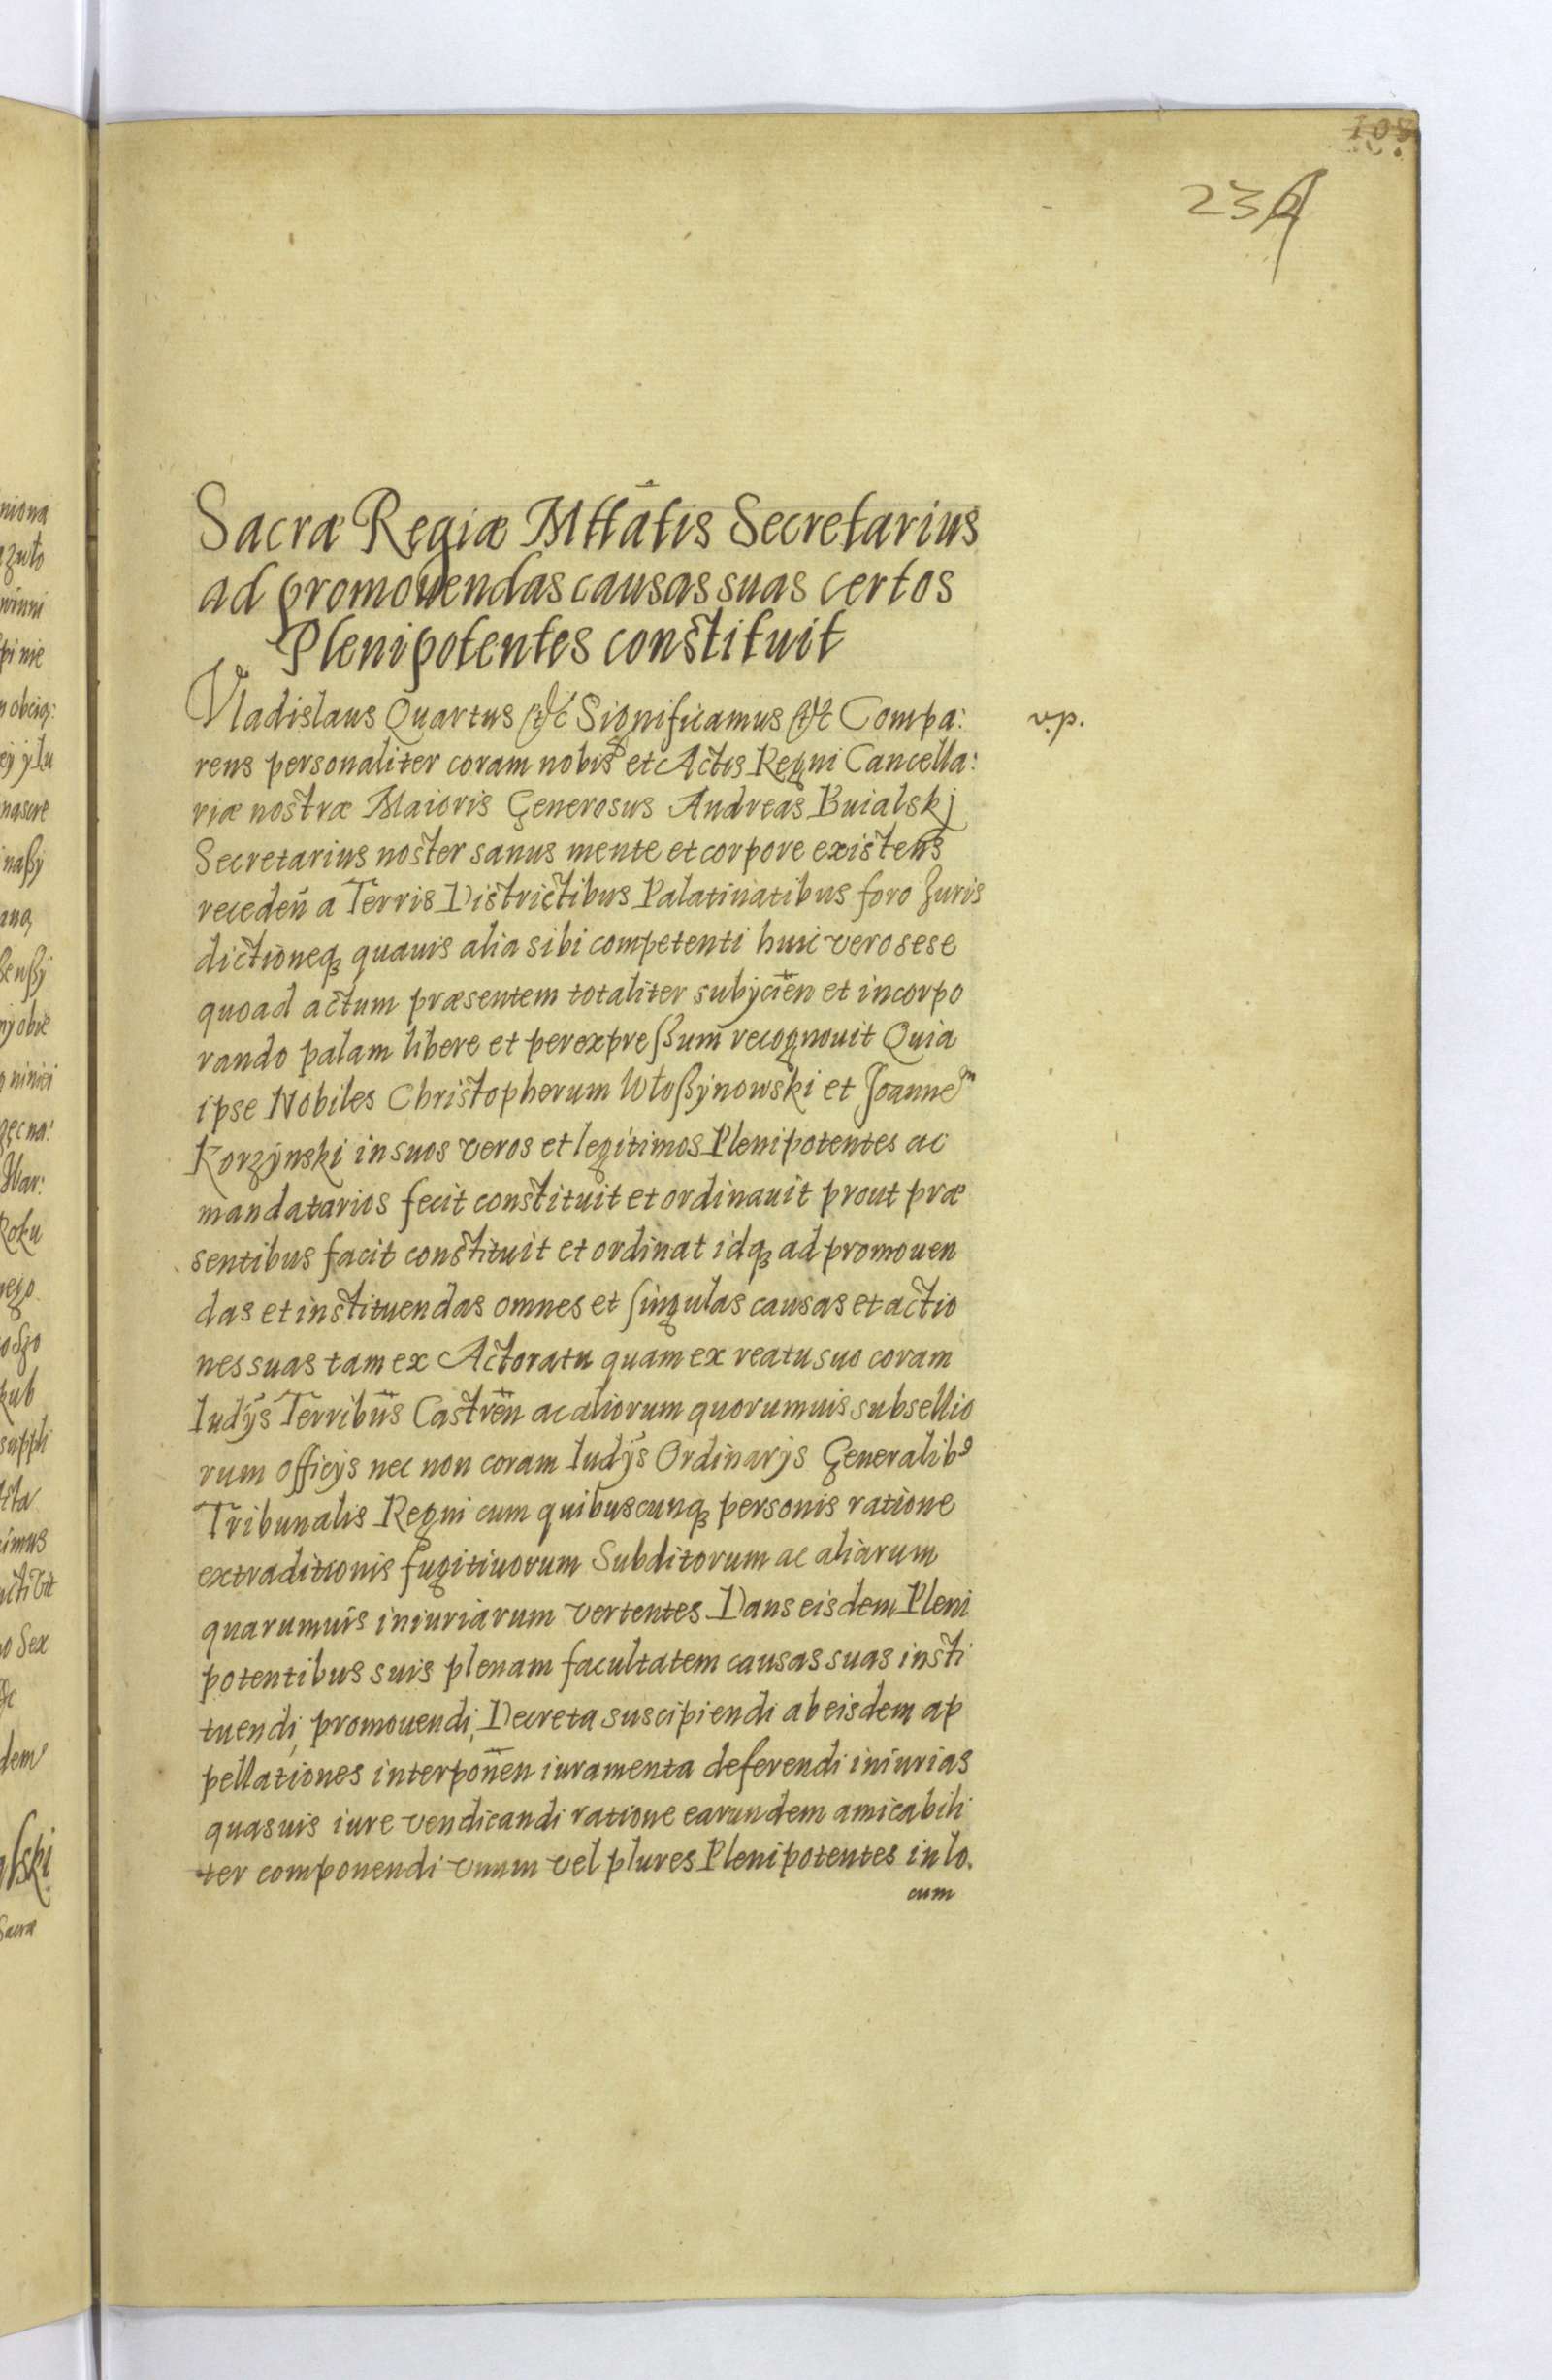 108
236
Sacræ Regiæ Mttãtis Secretarius
ad promouendas causas suas certos
Plenipotentes constituit
Vladislaus Quartus &c Significamus &c Compa:
rens personaliter coram nobis et Actis Regni Cancella:
riæ nostræ Maioris Generosus Andreas Buialskj
Secretarius noster sanus mente et corpore existens
receden̄ a Terris Districtibus Palatinatibus foro Juris
dictioneq quauis alia sibi competenti huic vero sese
quoad actum præsentem totaliter subÿcien̄ et incorpo
rando palam libere et per expreßum recognouit Quia
ipse Nobiles Christophorum Włoßÿnowski et Joannem
Korzÿnski in suos veros et legitimos Plenipotentes ac
mandatarios fecit constituit et ordinauit prout præ
sentibus facit constituit et ordinat idq ad promouen
das et instituendas omnes et singulas causas et actio
nes suas tam ex Actoratu quam ex reatu suo coram
Iudÿs Terribus̄ Castren̄ ac aliorum quorumuis subsellio
rum officÿs nec non coram Iudÿs Ordinarÿs Generalib9
Tribunalis Regni cum quibuscunq personis ratione
extraditionis fugitiuorum Subditorum ac aliarum
quarumuis iniuriarum vertentes Dans eisdem Pleni
potentibus suis plenam facultatem causas suas insti
tuendi, promouendi, Decreta suscipiendi ab eisdem ap
pellationes interponen̄ iuramenta deferendi iniurias
quasuis iure vendicandi ratione earundem amicabili
ter componendi vnum vel plures Plenipotentes in lo.
cum